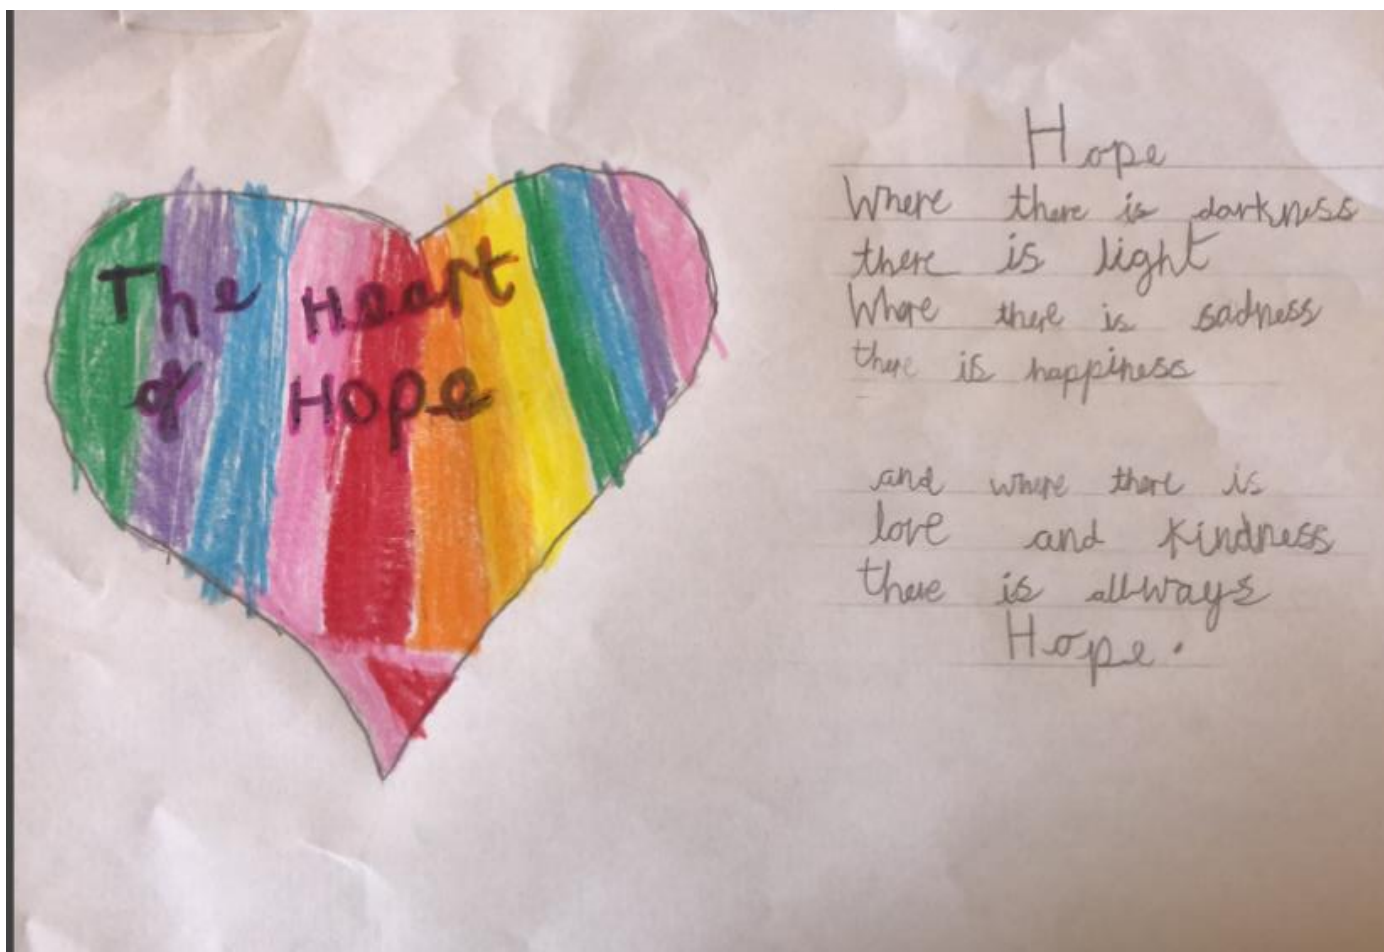 The Heart
of Hope
Hope
Where there is darkness
there is light
Where there is sadness
there is happiness
and where there is
love and kindness
there is allways
Hope.